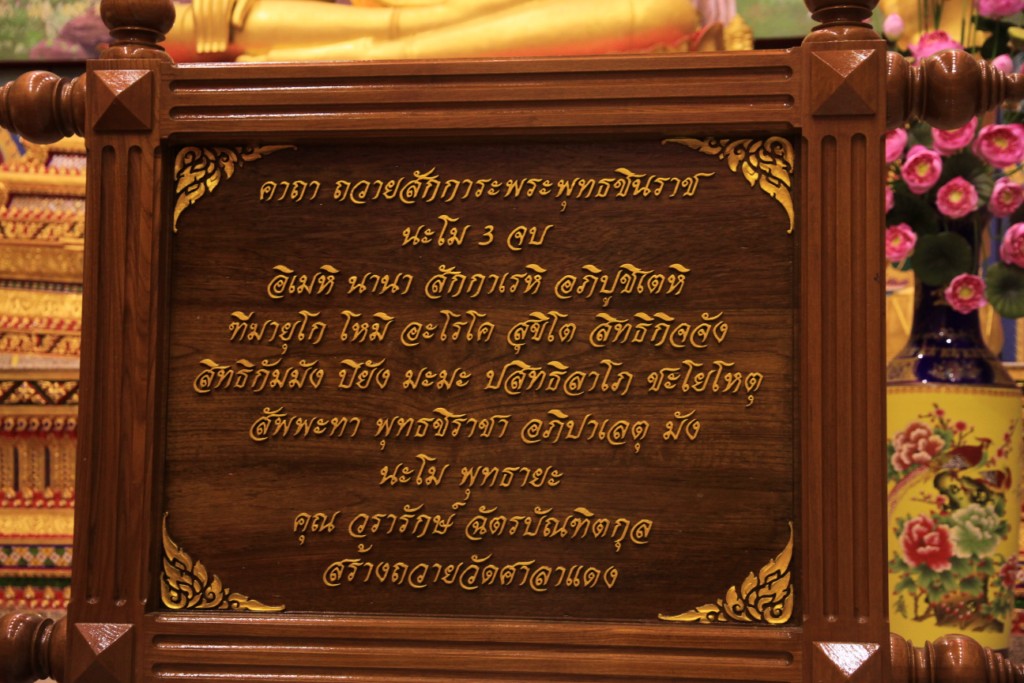 คาถา ถวายสักการะพระพุทธชินราช
นะโม 3 จบ
อิเมหิ นานา สักกาเรหิ อภิปูชิเตหิ
ทีฆายุโก โหมิ อะโรโค สุขิโต สิทธิกิจจัง
สิทธิกัมมัง ปิยัง มะมะ ปสิทธิลาโภ ชะโยโหตุ
สัพพะทา พุทธชิราชา อภิปาเลตุ มัง
นะโม พุทธายะ
คุณ วรารักษ์ ฉัตรบัณฑิตกุล
สร้างถวายวัดศาลาแดง